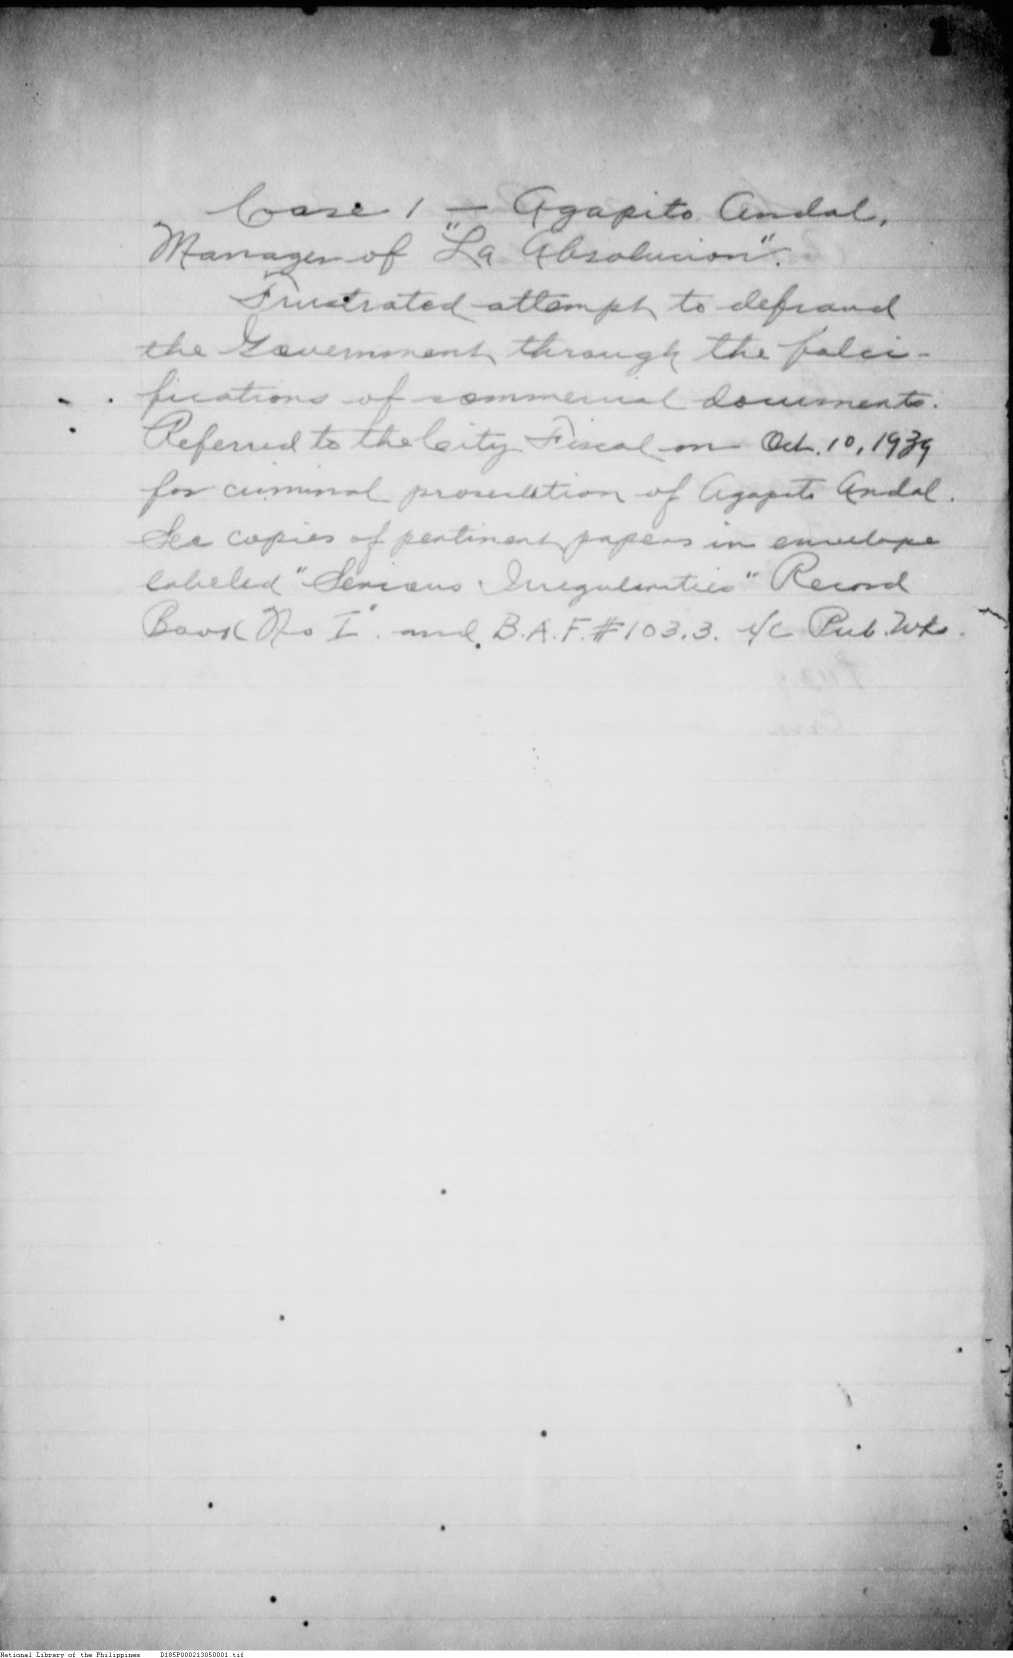 1
Case 1 — Agapito Andal,
Manager of "La Absolucion".
Frustrated attempt to defraud
the Government through the falci-
fications of commercial documents.
Referred to the City Fiscal on Oct. 10, 1939
for criminal prosecution of Agapito Andal.
See copies of pertinent papers in envelope
labeled "Serious Irregularities" Record
Book No I". and B.A.F. # 103.3. Pub. Wks.
National Library of the Philippines D185P000213050001.tif